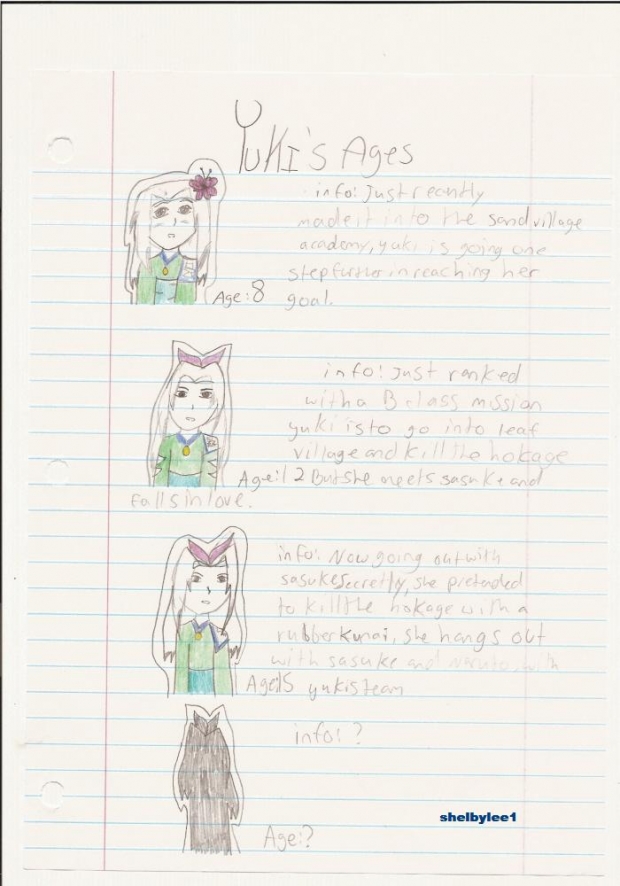 Yuki's Ages
info: Just recently
made it into the sand village
academy, yuki is going one
step further in reaching her
Age: 8 goal.
info: Just ranked
with a B class mission
yuki is to go into leaf
village and kill the hokage
Age: 12 But she meets sasuke and
falls in love.
info: Now going out with
sasuke secretly, she pretended
to kill the hokage with a
rubber kunai, she hangs out
with sasuke and naruto, with
Age: 15 yukis team
info: ?
Age: ?
shelbylee1